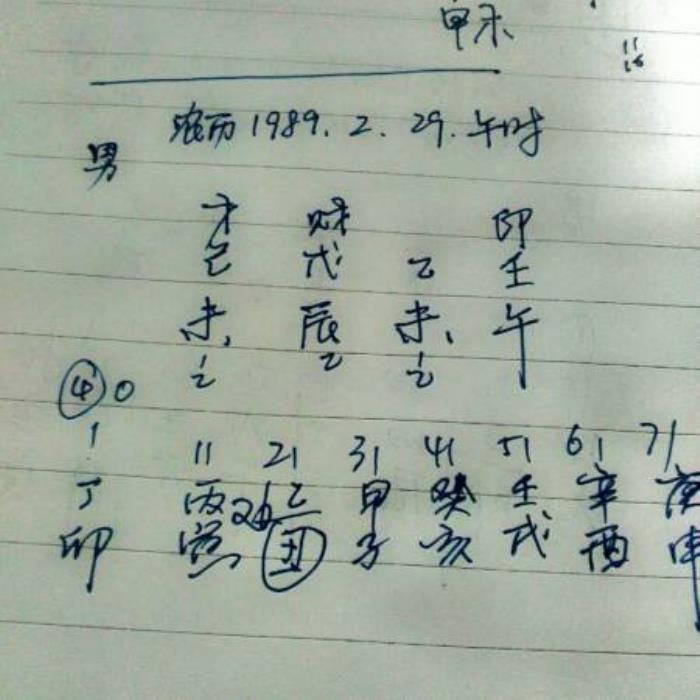 11
16
农历1989.2.29.午时
男
才 财 印
己 戊 乙 壬
未、 辰 未、 午
乙 乙 乙
④0
1 11 21 31 41 51 61 71
丁 丙 26 乙 甲 癸 壬 辛 庚
卯 寅 丑 子 亥 戌 酉 申